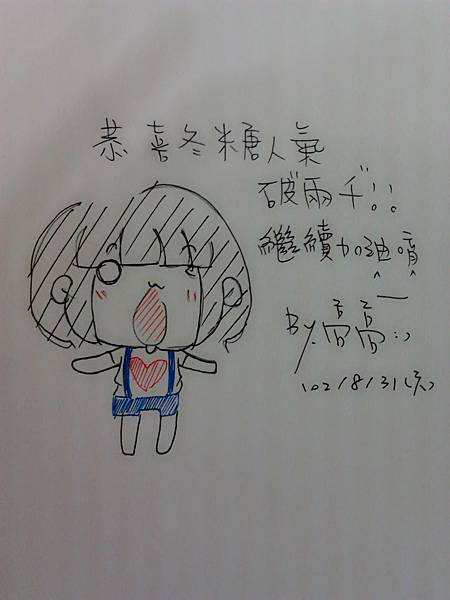 恭喜冬糖人氣
破兩千!!
繼續加油唷
^_^
By.
102/8/31